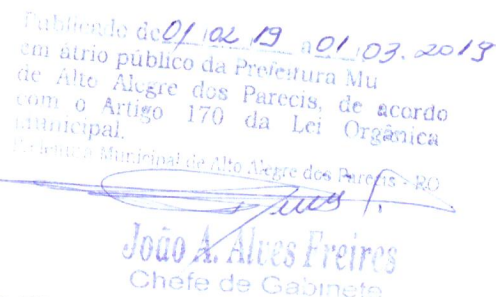 Publicado de 01 02 19 a 01 03. 2019
em átrio público da Prefeitura Mu
de Alto Alegre dos Parecis, de acordo
com o Artigo 170 da Lei Orgânica
Municipal.
Prefeitura Municipal de Alto Alegre dos Parecis - RO
João A. Alves Freires
Chefe de Gabinete